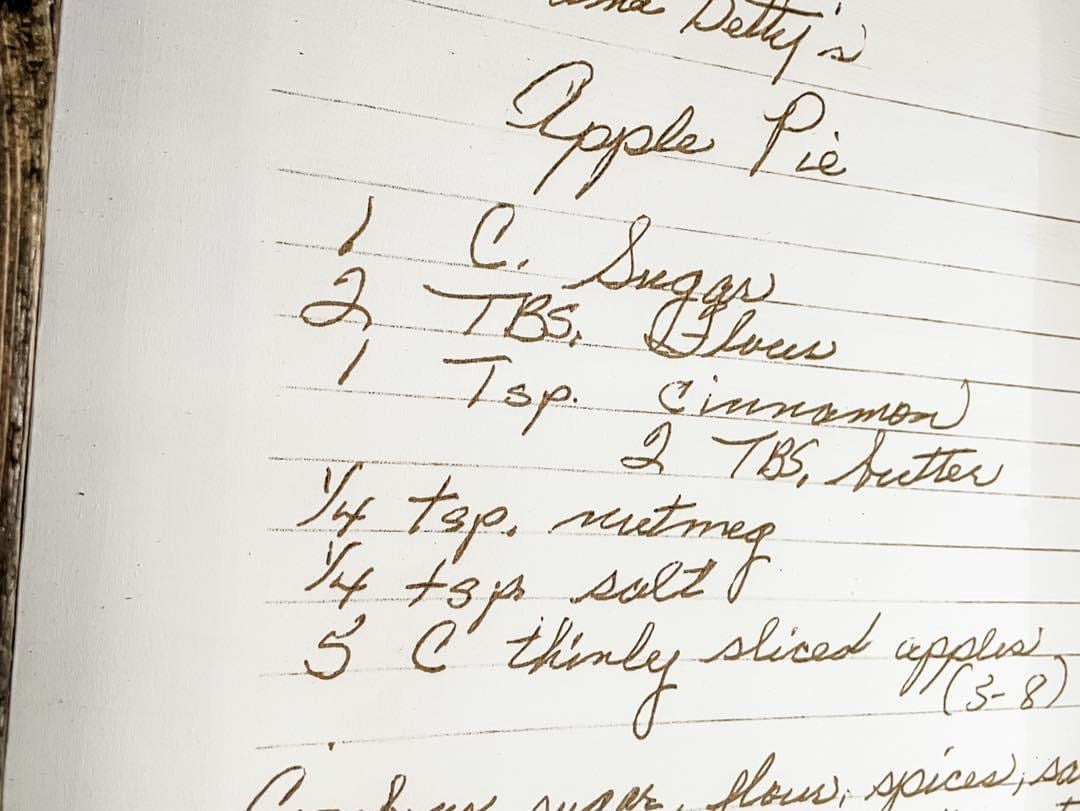 Betty's
Apple Pie
1 C. Sugar
2 TBS. Flour
1 Tsp. Cinnamon
2 TBS. butter
1/4 tsp. nutmeg
1/4 tsp salt
5 C thinly sliced apples
(3-8)
sugar, flour, spices,